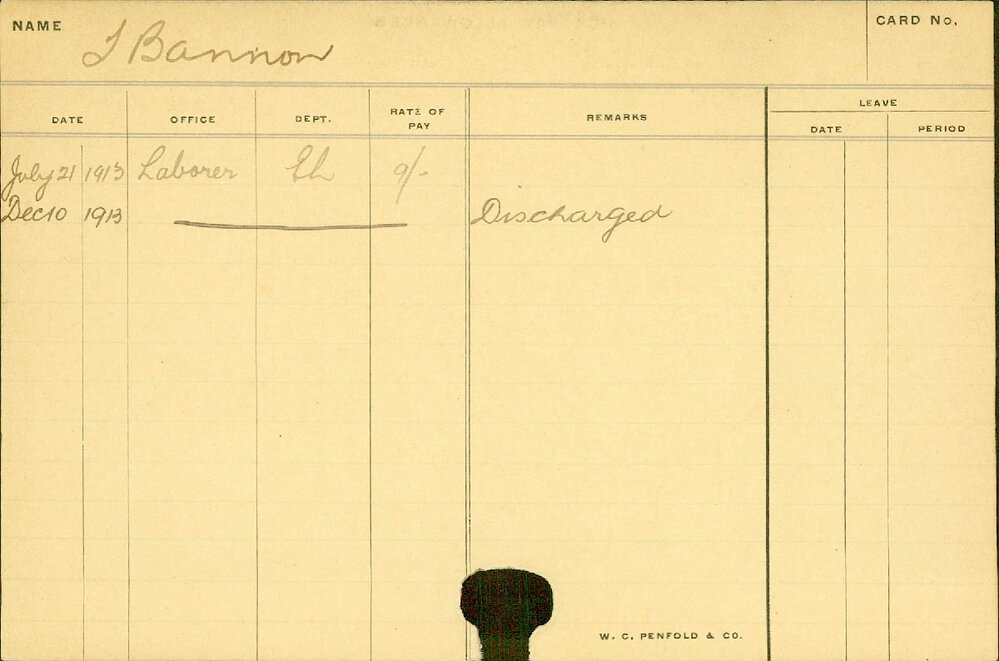 NAME
Bannon
CARD No.
DATE OFFICE DEPT. RATE OF PAY REMARKS LEAVE
DATE PERIOD
July 21 1913 Laborer 9/-
Dec 10 1913 Discharged
W. C. PENFOLD & CO.